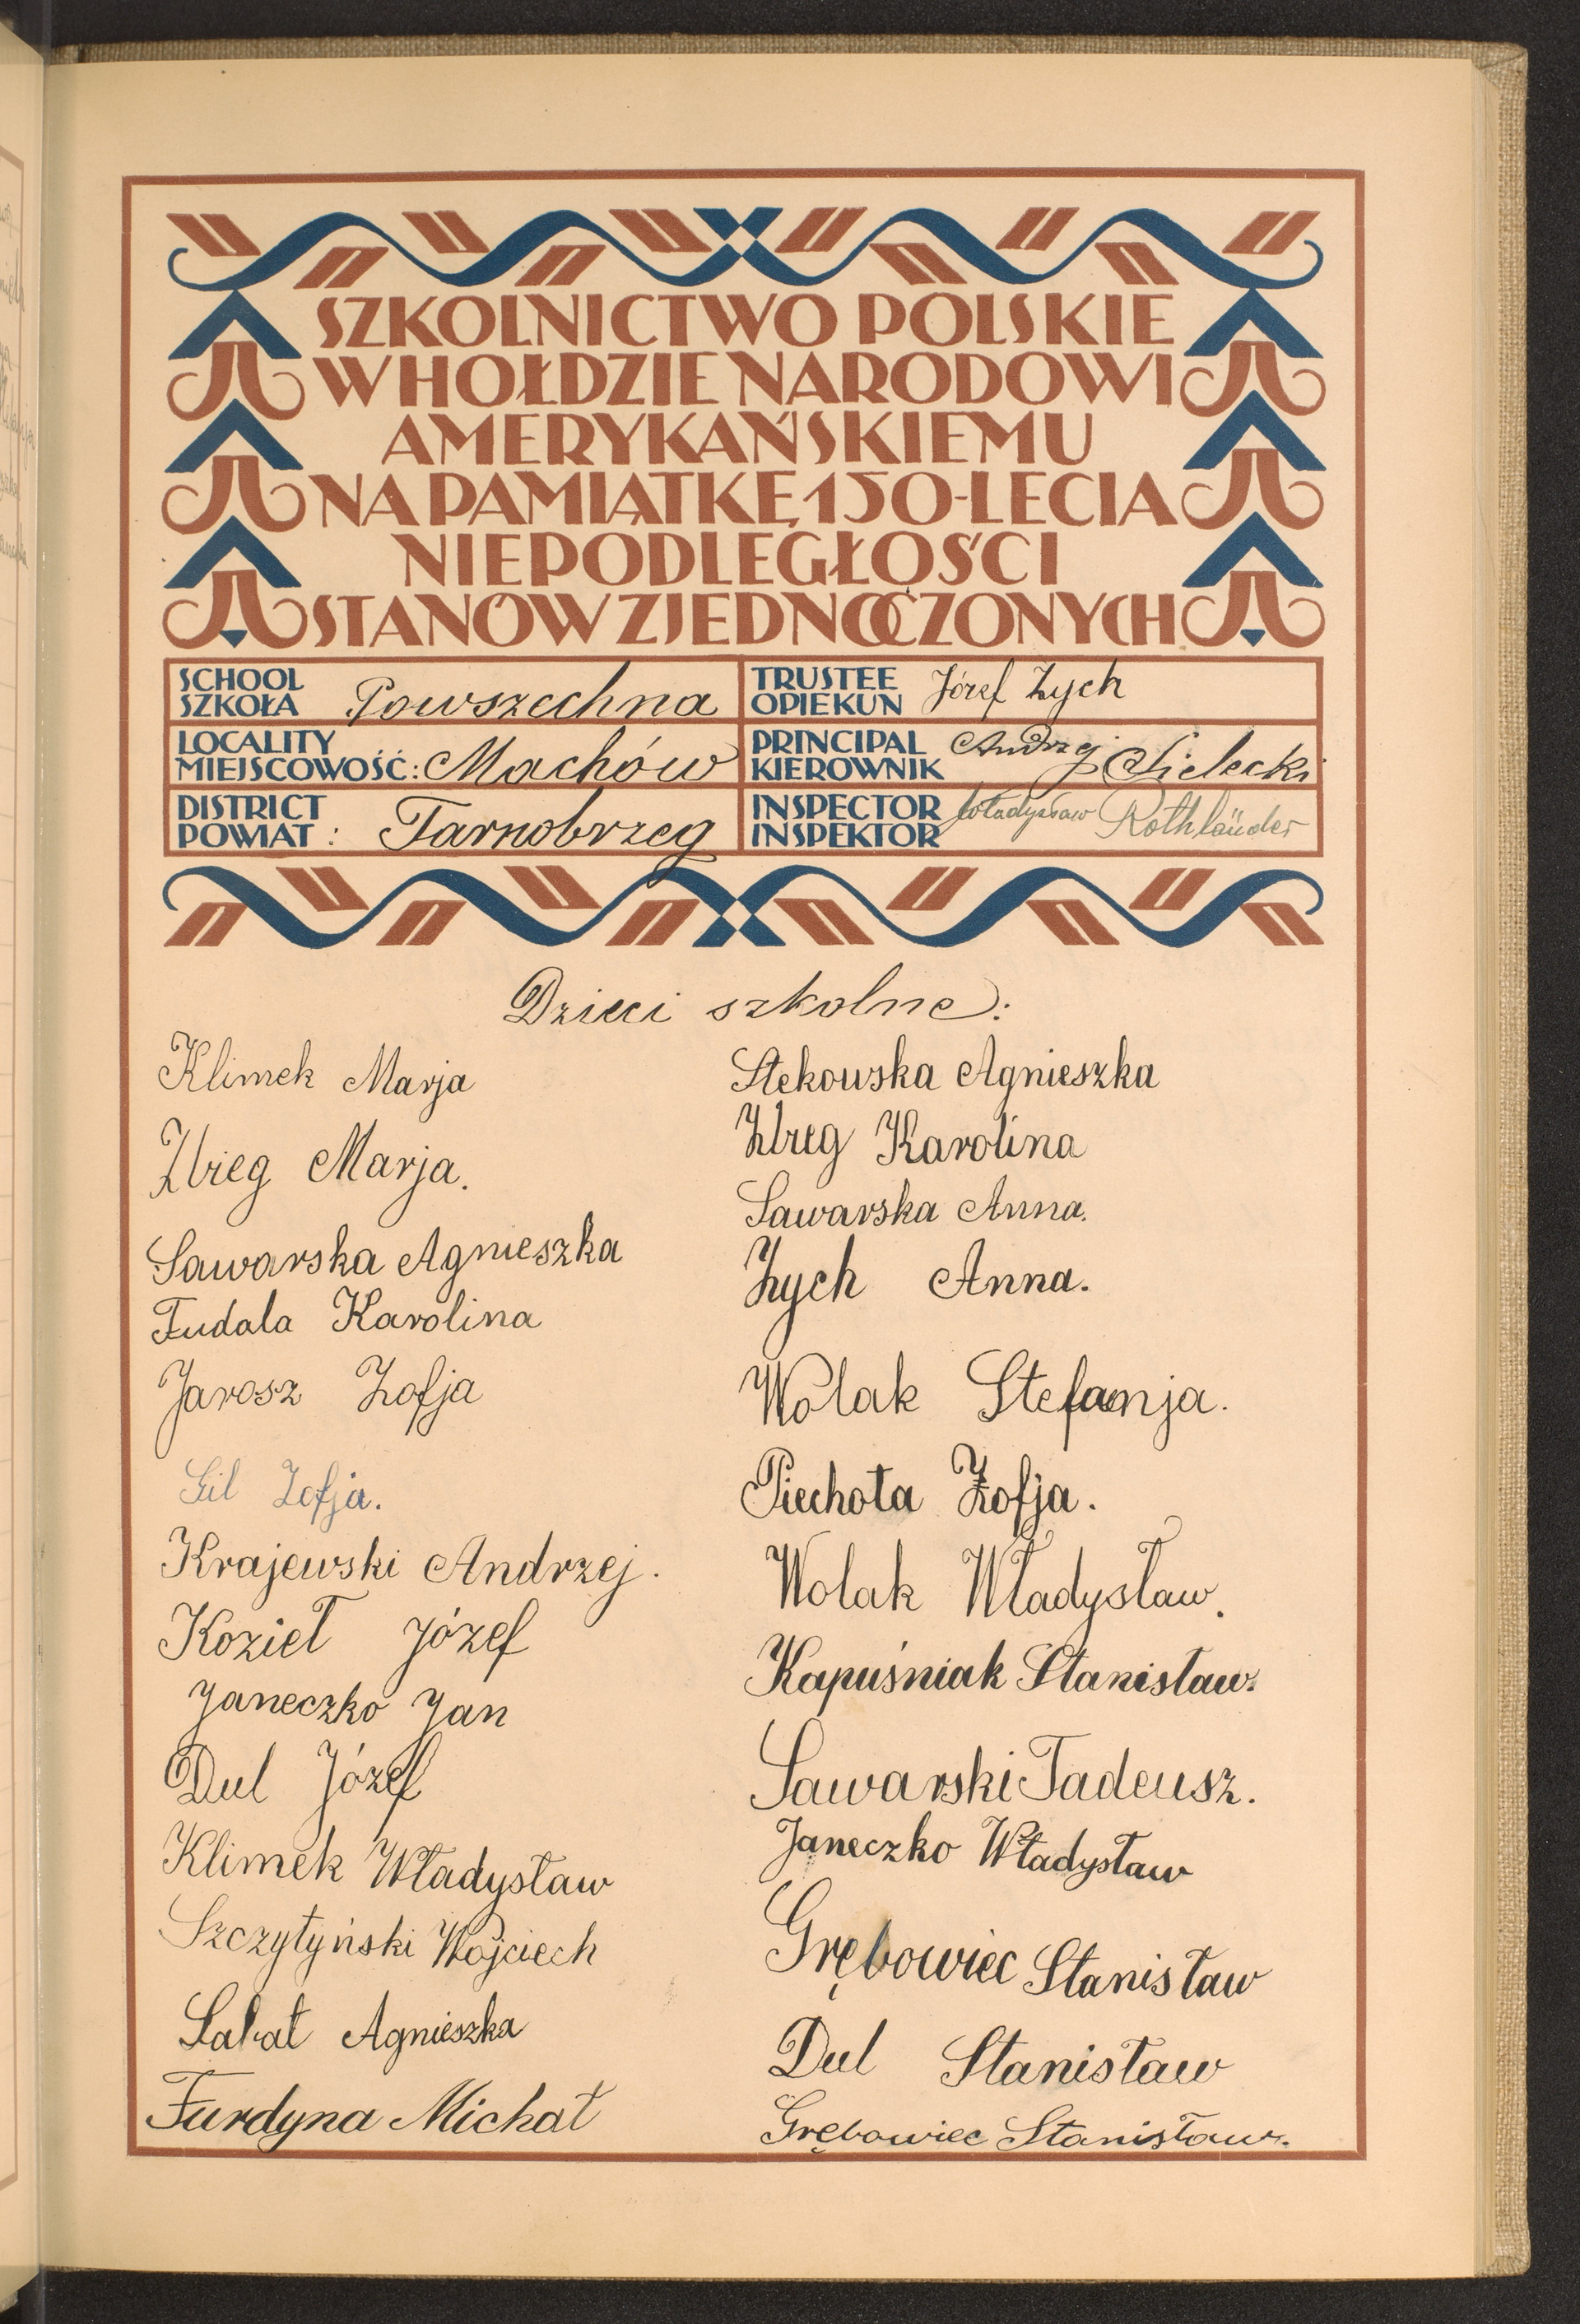 SZKOLNICTWO POLSKIE
W HOŁDZIE NARODOWI
AMERYKAŃSKIEMU
NA PAMIĄTKĘ 150-LECIA
NIEPODLEGŁOŚCI
STANÓW ZJEDNOCZONYCH
SCHOOL
SZKOŁA Powszechna
TRUSTEE
OPIEKUN Józef Zych
LOCALITY
MIEJSCOWOŚĆ: Machów
PRINCIPAL
KIEROWNIK Andrzej Sielecki
DISTRICT
POWIAT: Tarnobrzeg
INSPECTOR
INSPEKTOR Władysław Rothländer
Dzieci szkolne:
Klimek Marja
Zbieg Marja.
Sawarska Agnieszka
Fudala Karolina
Jarosz Zofja
Gil Zofja.
Krajewski Andrzej.
Kozieł Józef
Janeczko Jan
Dul Józef
Klimek Władysław
Szczytyński Wojciech
Sabat Agnieszka
Furdyna Michał
Stekowska Agnieszka
Karolina
Sawarska Anna.
Zych Anna.
Wolak Stefanja.
Piechota Zofja.
Wolak Władysław.
Kapuśniak Stanisław.
Sawarski Tadeusz.
Janeczko Władysław
Grębowiec Stanisław
Dul Stanisław
Grębowiec Stanisław.